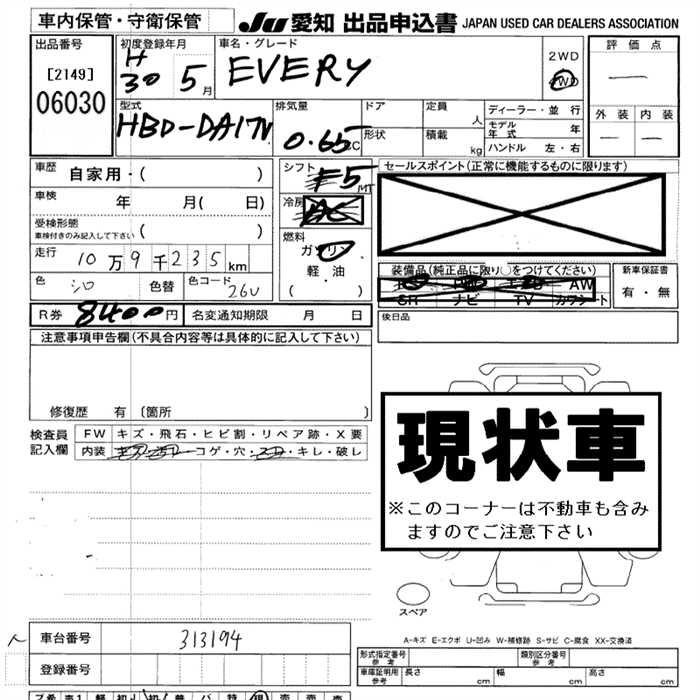 車内保管・守衛保管 JU愛知 出品申込書 JAPAN USED CAR DEALERS ASSOCIATION
出品番号 初度登録年月 車名・グレード 2WD 4WD 評価点
[2149] H 30 5月 EVERY —
06030 型式 排気量 ドア 定員 人 ディーラー・並行 外装 内装
HBD-DA17V 0.65CC 形状 積載 kg モデル年式 年 — —
ハンドル 左・右
車歴 自家用・( ) シフト F5 MT セールスポイント(正常に機能するものに限ります)
車検 年 月( 日) 冷房 AC
受検形態 車検付きのみ記入して下さい ( ) 燃料 ガソリン
走行 10万9千235km 軽・油 装備品(純正品に限り○をつけてください) 新車保証書
色 シロ 色替 色コード 26U ( ・ ) AW 有・無
SR ナビ TV カワシート
R券 8400円 名変通知期限 月 日 後日品
注意事項申告欄(不具合内容等は具体的に記入して下さい)
現状車
※このコーナーは不動車も含み
ますのでご注意下さい
修復歴 有 〔箇所 〕
検査員記入欄 FW キズ・飛石・ヒビ割・リペア跡・X要
内装 コゲ・穴・スレ・キレ・破レ
スペア
車台番号 313194 A-キズ E-エクボ U-凹み W-補修跡 S-サビ C-腐食 XX-交換済
登録番号 形式指定番号 参考 類別区分番号 参考
車庫証明用 参考 長さ cm 幅 cm 高さ cm